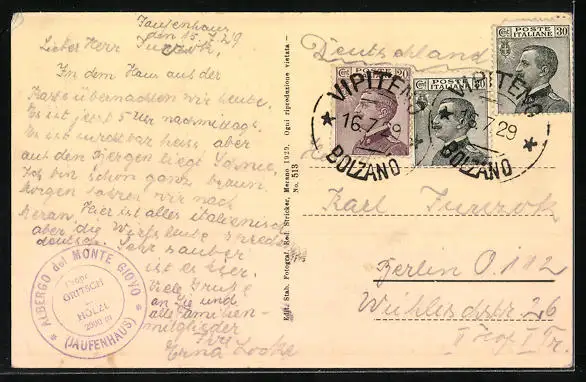 Jaufenhaus
den 15.7.29
Lieber Herr Turzok,
In dem Haus auf der
Karte übernachten wir heute.
Es ist jetzt 5 Uhr nachmittags.
Es ist furchtbar heiss, aber
auf den Bergen liegt
Ich bin schon ganz braun.
Morgen fahren wir nach
Meran. Hier ist alles italienisch
aber die Wirtsleute
deutsch. Sehr sauber
ist es hier.
Viele Grüße
an Sie und
alle Familien-
mitglieder
Ihre
Erna
ALBERGO del MONTE GIOVO
Propr.
GRITSCH
HÖLZL
2000 m
(JAUFENHAUS)
Ediz. Stab. Fotograf. Red. Stricker, Merano 1929. Ogni riproduzione vietata —
No. 513
Deutschland
POSTE ITALIANE 30
POSTE ITALIANE 20
VIPITENO
16.7.29
BOLZANO
VIPITENO
16.7.29
BOLZANO
Karl Turzok
Berlin O.112
Wühlischstr. 26